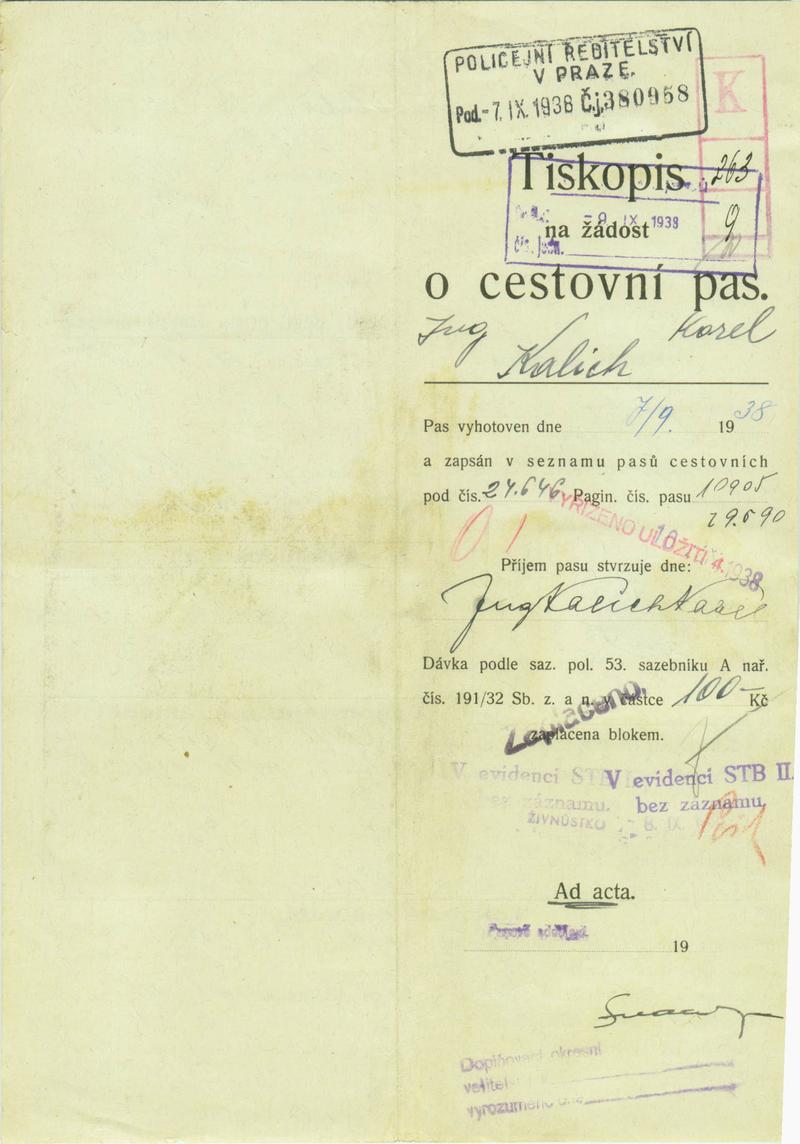 POLICEJNÍ ŘEDITELSTVÍ
V PRAZE.
Pod. -7. IX. 1938 Čj. 380958
K
Tiskopis 263
-9. IX 1938
na žádost 9
o cestovní pas.
Ing Karel
Kalich
Pas vyhotoven dne 7/9. 1938
a zapsán v seznamu pasů cestovních
pod čís. 24.646 Pagin. čís. pasu 10905
29.590
VYŘÍZENO ULOŽITI 4. 1938
Příjem pasu stvrzuje dne:
Ing Kalich Karel
Dávka podle saz. pol. 53. sazebníku A nař.
čís. 191/32 Sb. z. a n. v částce 100- Kč
Zaplaceno.
zaplacena blokem.
V evidenci STB V evidenci STB II.
bez záznamu. bez záznamu.
ŽIVNŮSTKO 8. IX.
Ad acta.
19
Doplňovací okresní
velitel
vyrozuměno dne